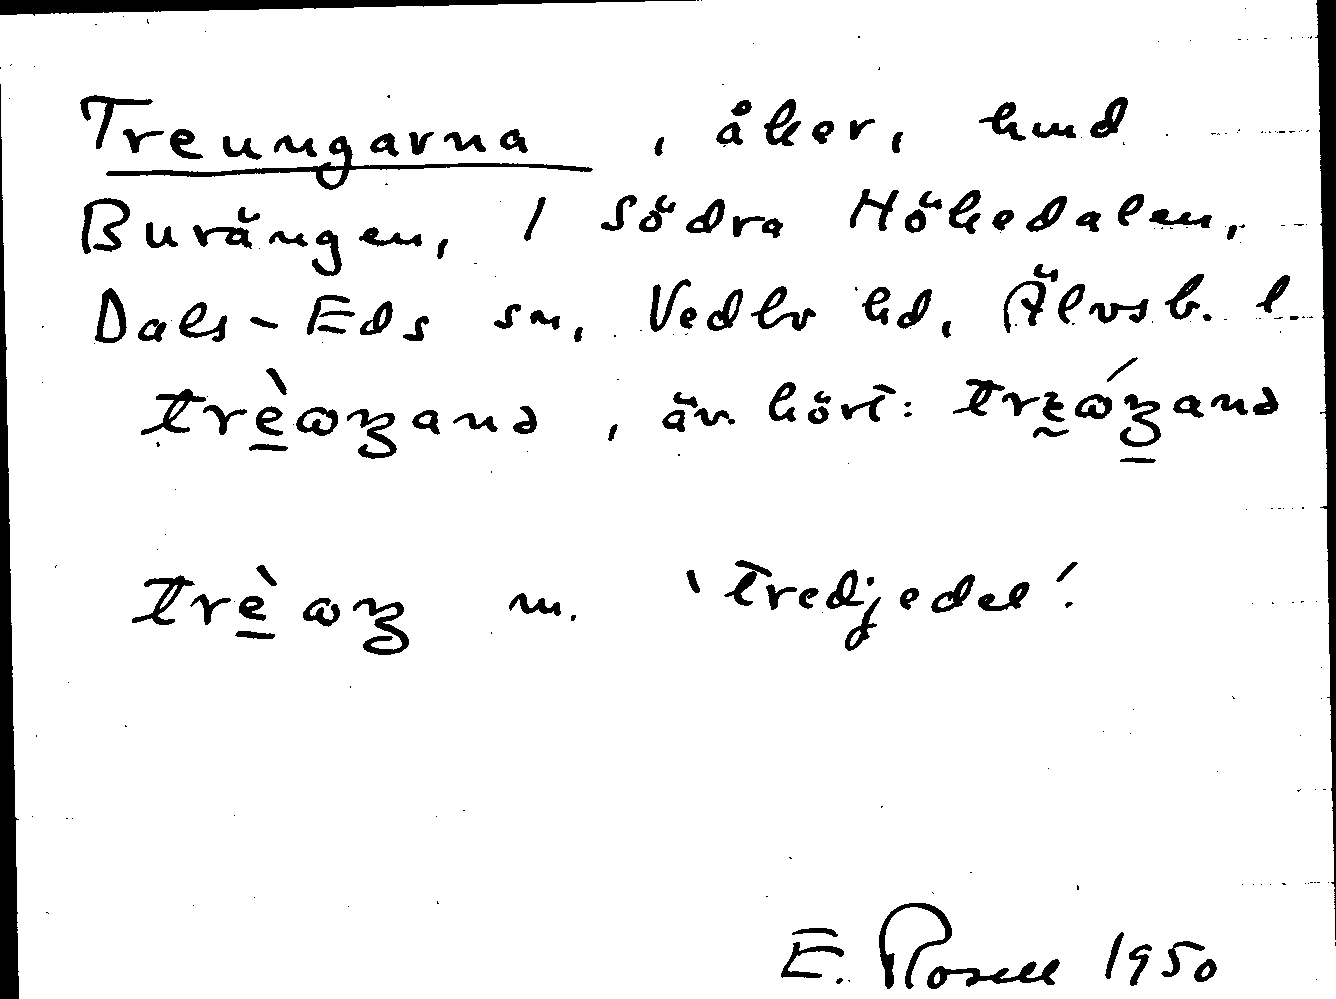 Treungarna, åker, hmd
Burängen, 1 Södra Hökedalen,
Dals-Eds sn, Vedbo hd, Älvsb. l.
trèωꜫanə, äv. hört: trɛωꜫ́anə
trèωꜫ m. 'tredjedel'.
E. Rosell 1950